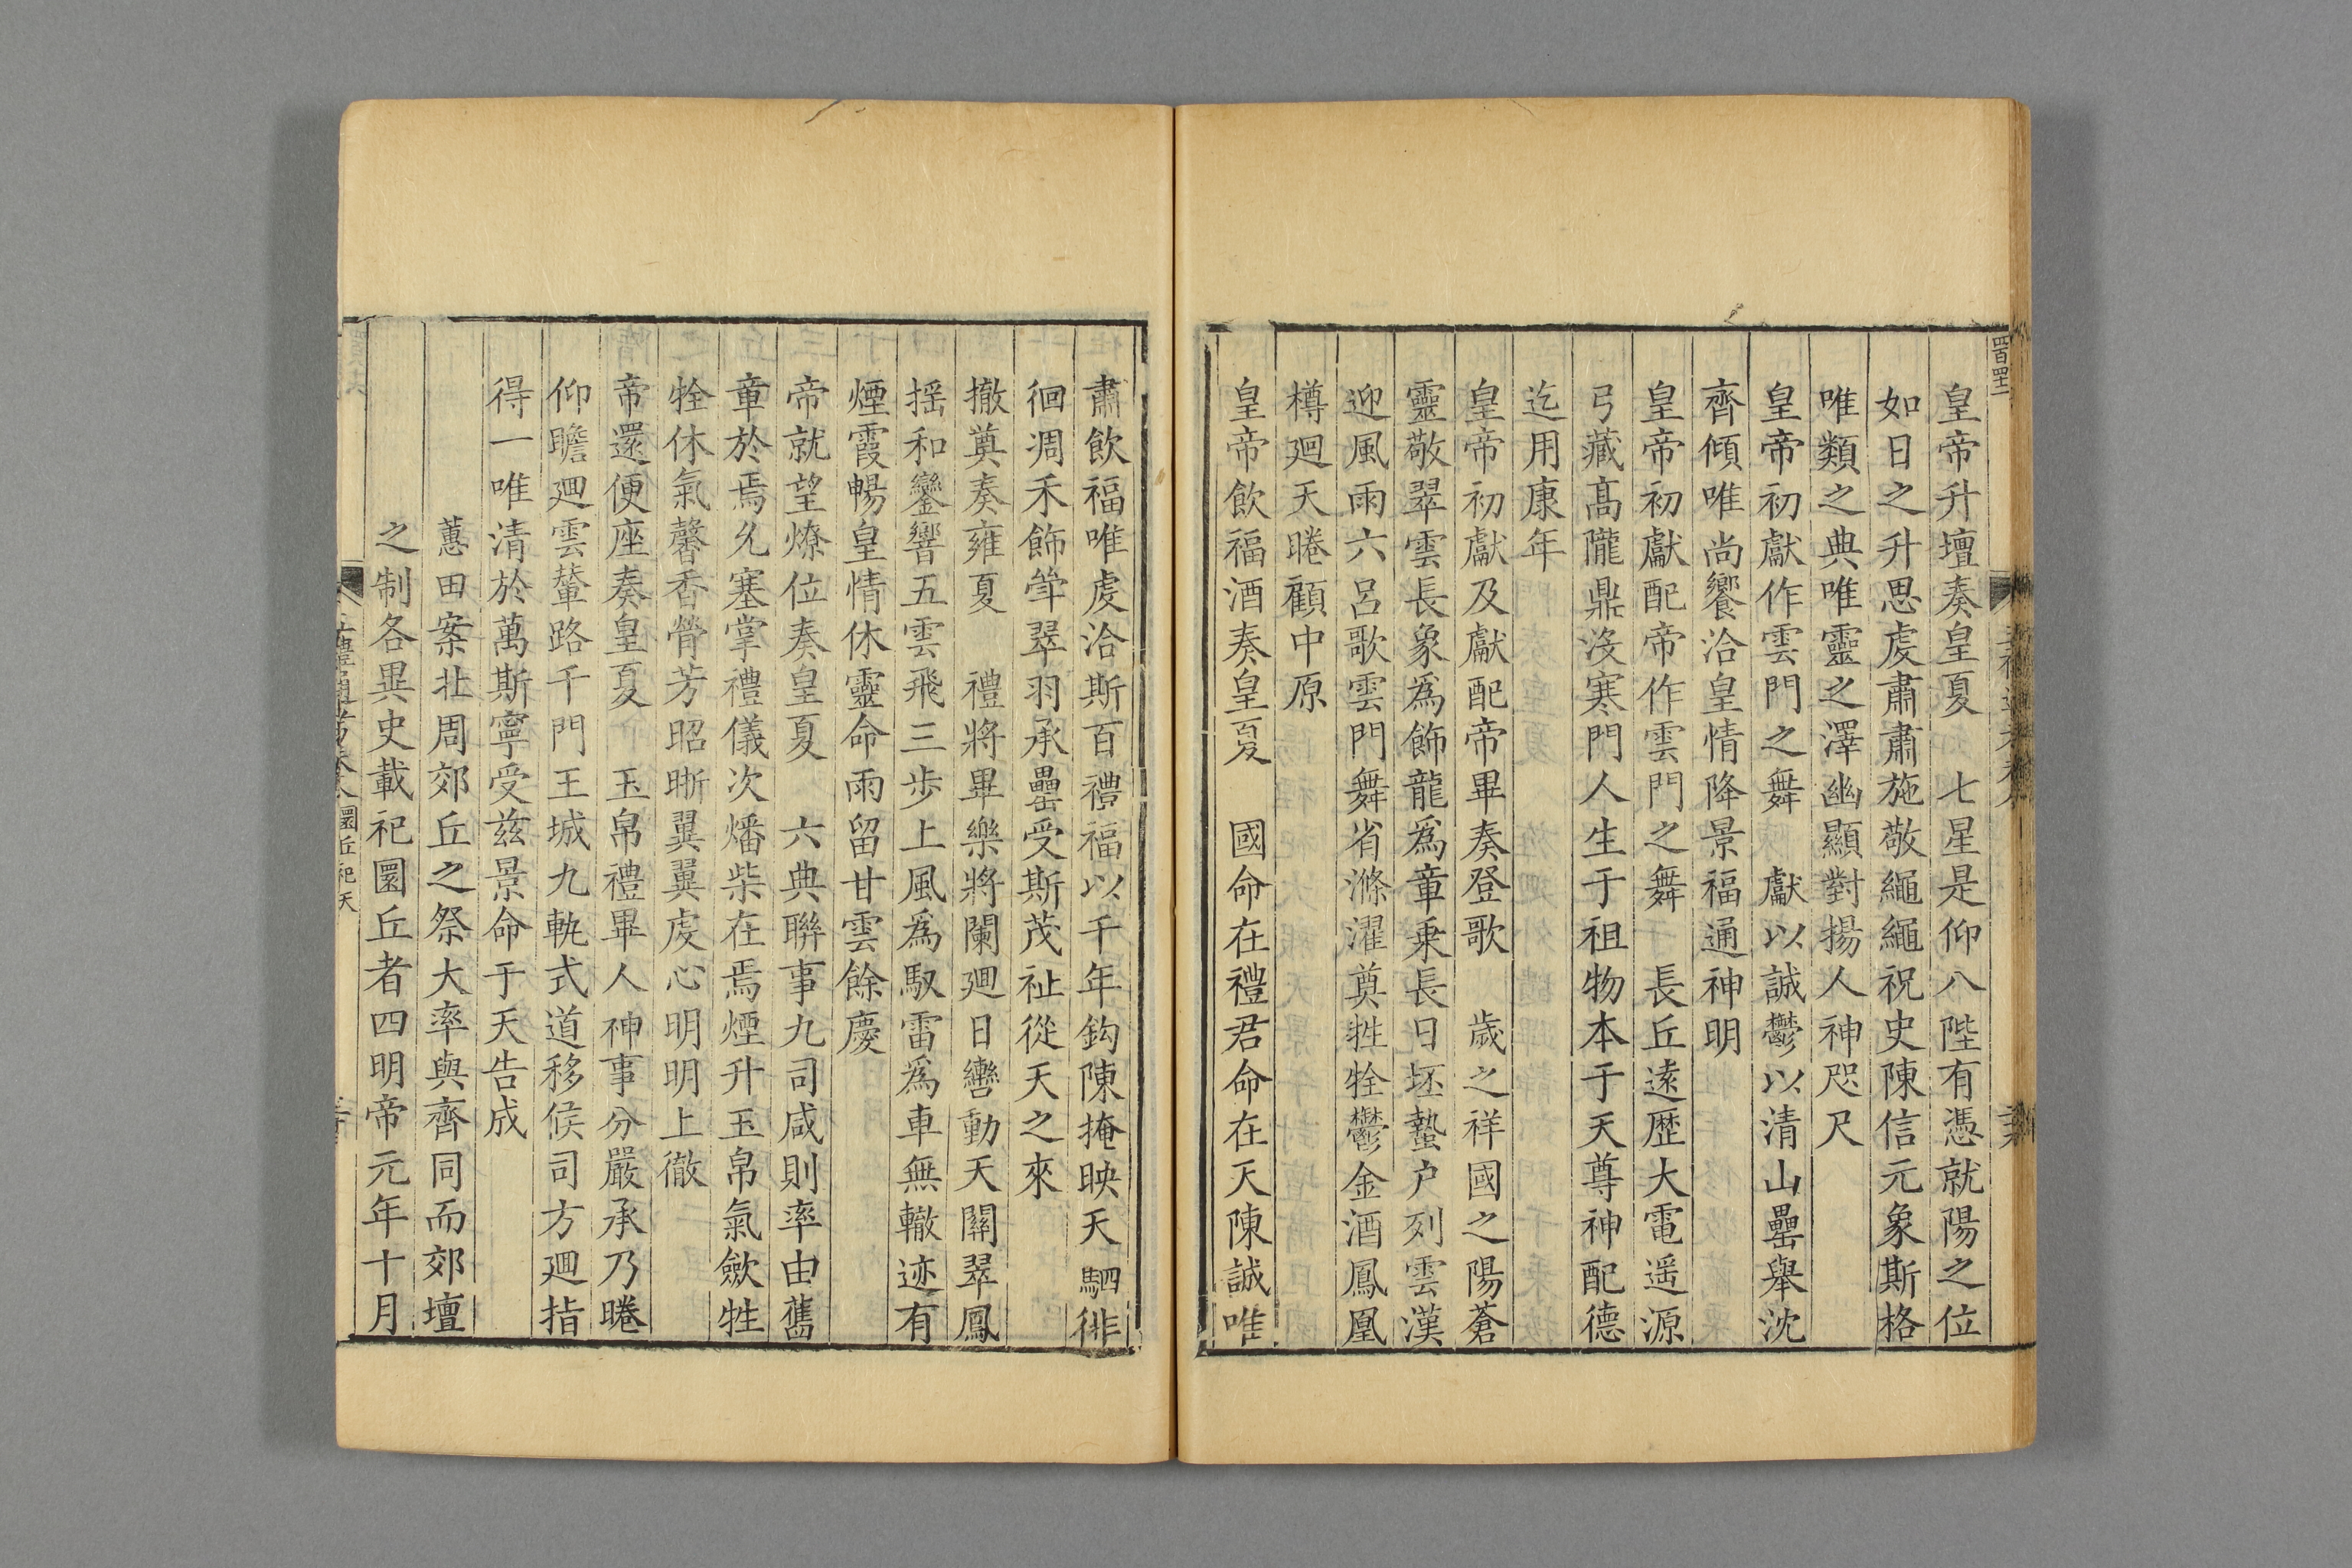 皇帝升壇奏皇夏　七星是仰八陛有憑就陽之位
如日之升思虔肅肅施敬繩繩祝史陳信元象斯格
唯類之典唯靈之澤幽顯對揚人神咫尺
皇帝初獻作雲門之舞　獻以誠鬱以清山罍舉沈
齊傾唯尚饗洽皇情降景福通神明
皇帝初獻配帝作雲門之舞　長丘逺歷大電遥源
弓藏髙隴鼎沒寒門人生于祖物本于天尊神配德
迄用康年
皇帝初獻及獻配帝畢奏登歌　歲之祥國之陽蒼
靈敬翠雲長象爲飾龍爲章乗長日坯蟄户列雲漢
迎風雨六呂歌雲門舞省滌濯奠牲牷鬱金酒鳳凰
樽廻天睠顧中原
皇帝飲福酒奏皇夏　國命在禮君命在天陳誠唯
肅飲福唯虔洽斯百禮福以千年鈎陳掩映天駟徘
徊凋禾飾斝翠羽承罍受斯茂祉從天之來
撤奠奏雍夏　禮將畢樂將闌廻日轡動天關翠鳳
揺和鑾響五雲飛三步上風爲馭雷爲車無轍迹有
煙霞暢皇情休靈命雨留甘雲餘慶
帝就望燎位奏皇夏　六典聯事九司咸則率由舊
章於焉允塞掌禮儀次燔柴在焉煙升玉帛氣歛牲
牷休氣馨香膋芳昭晣翼翼虔心明明上徹
帝還便座奏皇夏　玉帛禮畢人神事分嚴承乃睠
仰瞻廻雲輦路千門王城九軌式道移候司方廻指
得一唯清於萬斯寧受兹景命于天告成
蕙田案北周郊丘之祭大率與齊同而郊壇
之制各異史載祀圜丘者四明帝元年十月
圜丘祀天